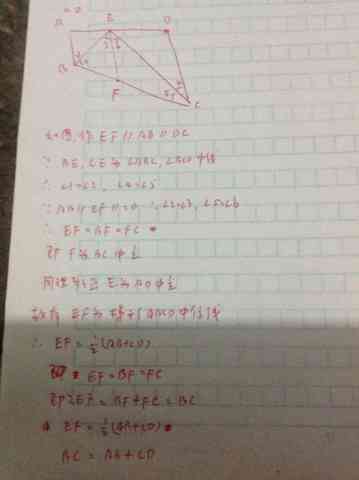 A E D
B
F
C
如图,作EF∥AB∥DC
∵ BE,CE为∠ABC,∠BCD中线
∴ ∠1=∠2, ∠4=∠5
∵AB∥EF∥CD ∴∠2=∠3, ∠5=∠6
∴ EF=BF=FC
即F为BC中点
同理 E为AD中点
故有 EF为梯形ABCD中位线
∴ EF=½(AB+CD)
EF=BF=FC
即2EF=BF+FC=BC
EF=½(AB+CD)
BC=AB+CD